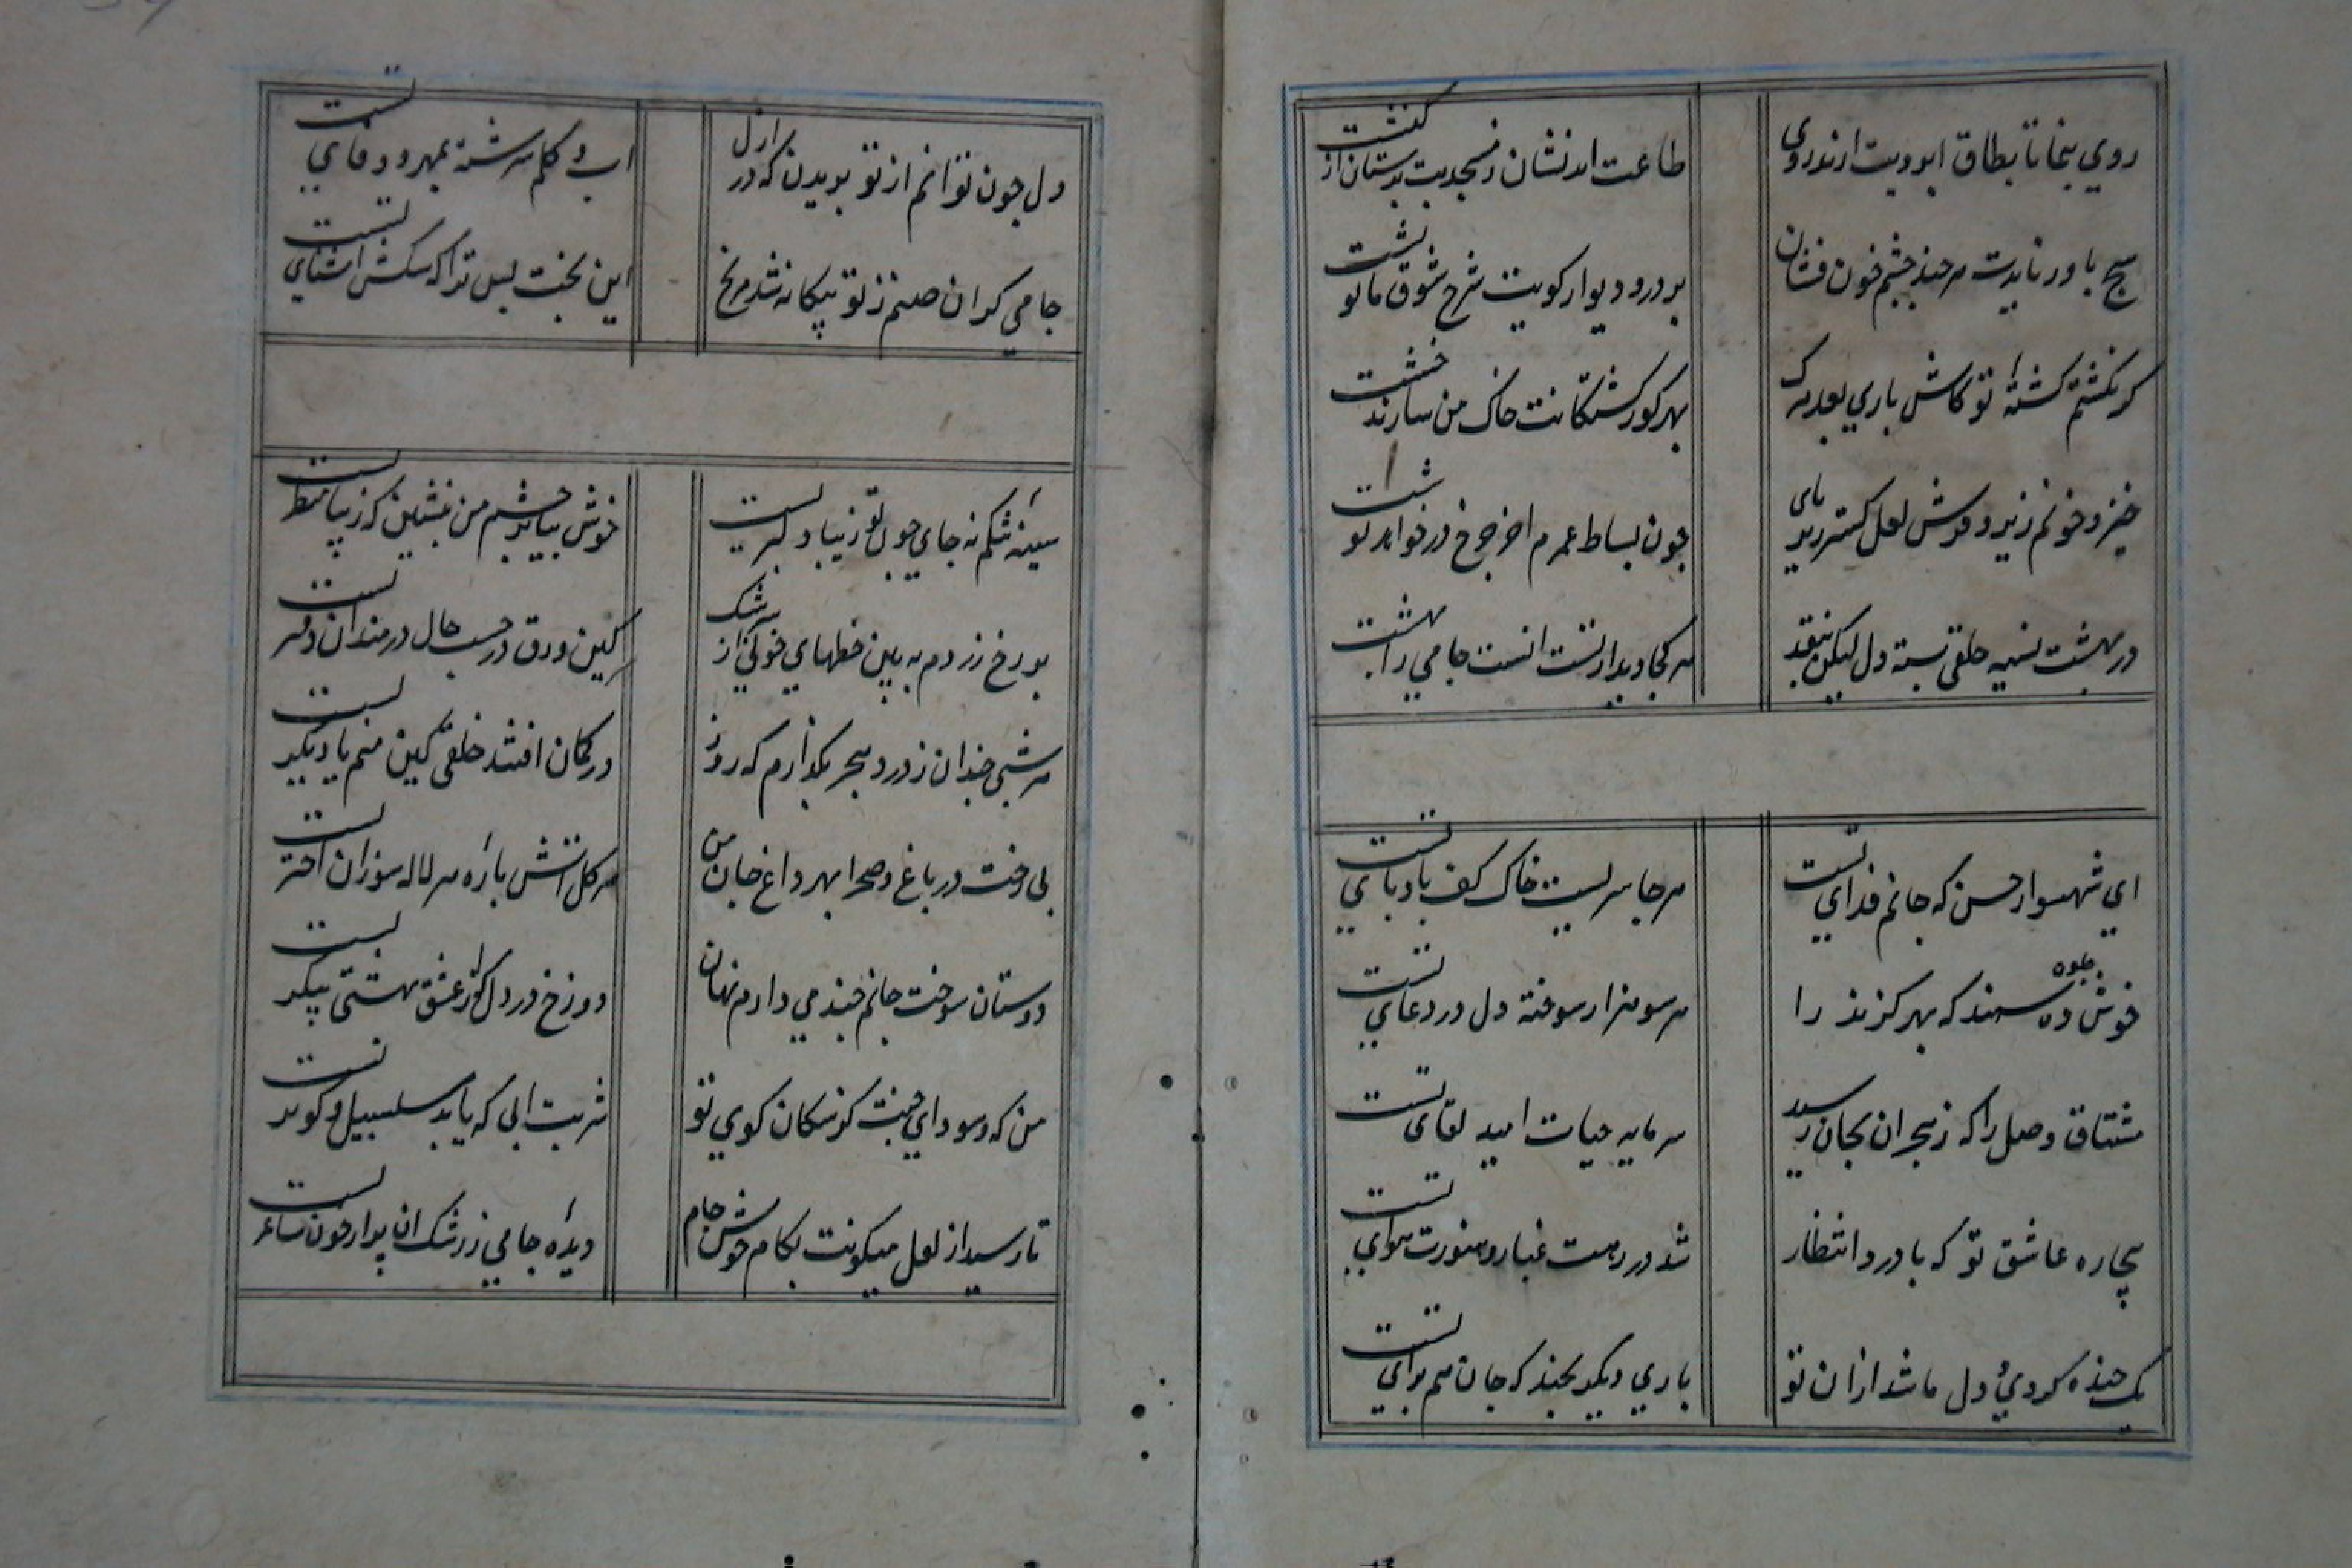 روي بنما تا بطاق ابرويت ارند روي
طاعت اندنشان ز مسجد بت پرستان از كنشت
هيچ باور نايدت هر چند چشم خون فشان
بر در و ديوار كويت شرح شوق ما نوشت
كر نكشتم كشتهٔ تو كاش باري بعد مرك
بهر كور كشتكانت خاك من سازند خشت
خيز و خونم ريز و فرش لعل كستر زير پاي
چون بساط عمرم اخر چرخ در خواهد نوشت
در بهشت نسيه خلقي بسته دل ليكن بنقد
هر كجا ديدار تست انست جامي را بهشت
اي شهسوار حسن كه جانم فداي تست
هر جا سريست خاك كف باد پاي تست
خوش جلوه ده سمند كه بهر كزند را
هر سو هزار سوخته دل در دعاي تست
مشتاق وصل را كه ز هجران بجان رسيد
سرمايه حيات اميد لقاي تست
بيچاره عاشق تو كه با درد انتظار
شد در رهت غبار و هنوزت هواي تست
يك خنده كردي و دل ما شد ازان تو
باري ديكر بخند كه جان هم براي تست
دل چون توانم از تو بريدن كه در ازل
اب و كلم سرشته بمهر و وفاي تست
جامي كر ان صنم ز تو بيكانه شد مرنج
اين بخت بس ترا كه سكش اشناي تست
سينه تنكم نه جاي چون تو زيبا دلبريست
خوش بيا بر چشم من بنشين كه زيبا منظريست
بر رخ زردم به بين خطهاي خونين از سرشك
كين ورق در حسب حال دردمندان دفتريست
هر شبي چندان ز درد هجر بكدازم كه روز
در كمان افتند خلقي كين منم يا ديكريست
بي رخت در باغ و صحرا بهر داغ جان من
هر كل اتش پاره هر لاله سوزان اخكريست
دوستان سوخت جانم چند مي دارم نهان
دوزخ در دل كز عشق بهشتي پيكريست
من كه و سوداي جنت كز سكان كوي تو
شربت ابي كه يابد سلسبيل و كوثريست
تا رسيد از لعل ميكونت بكام خويش جام
ديده جامي ز رشك ان پر از خون ساغريست